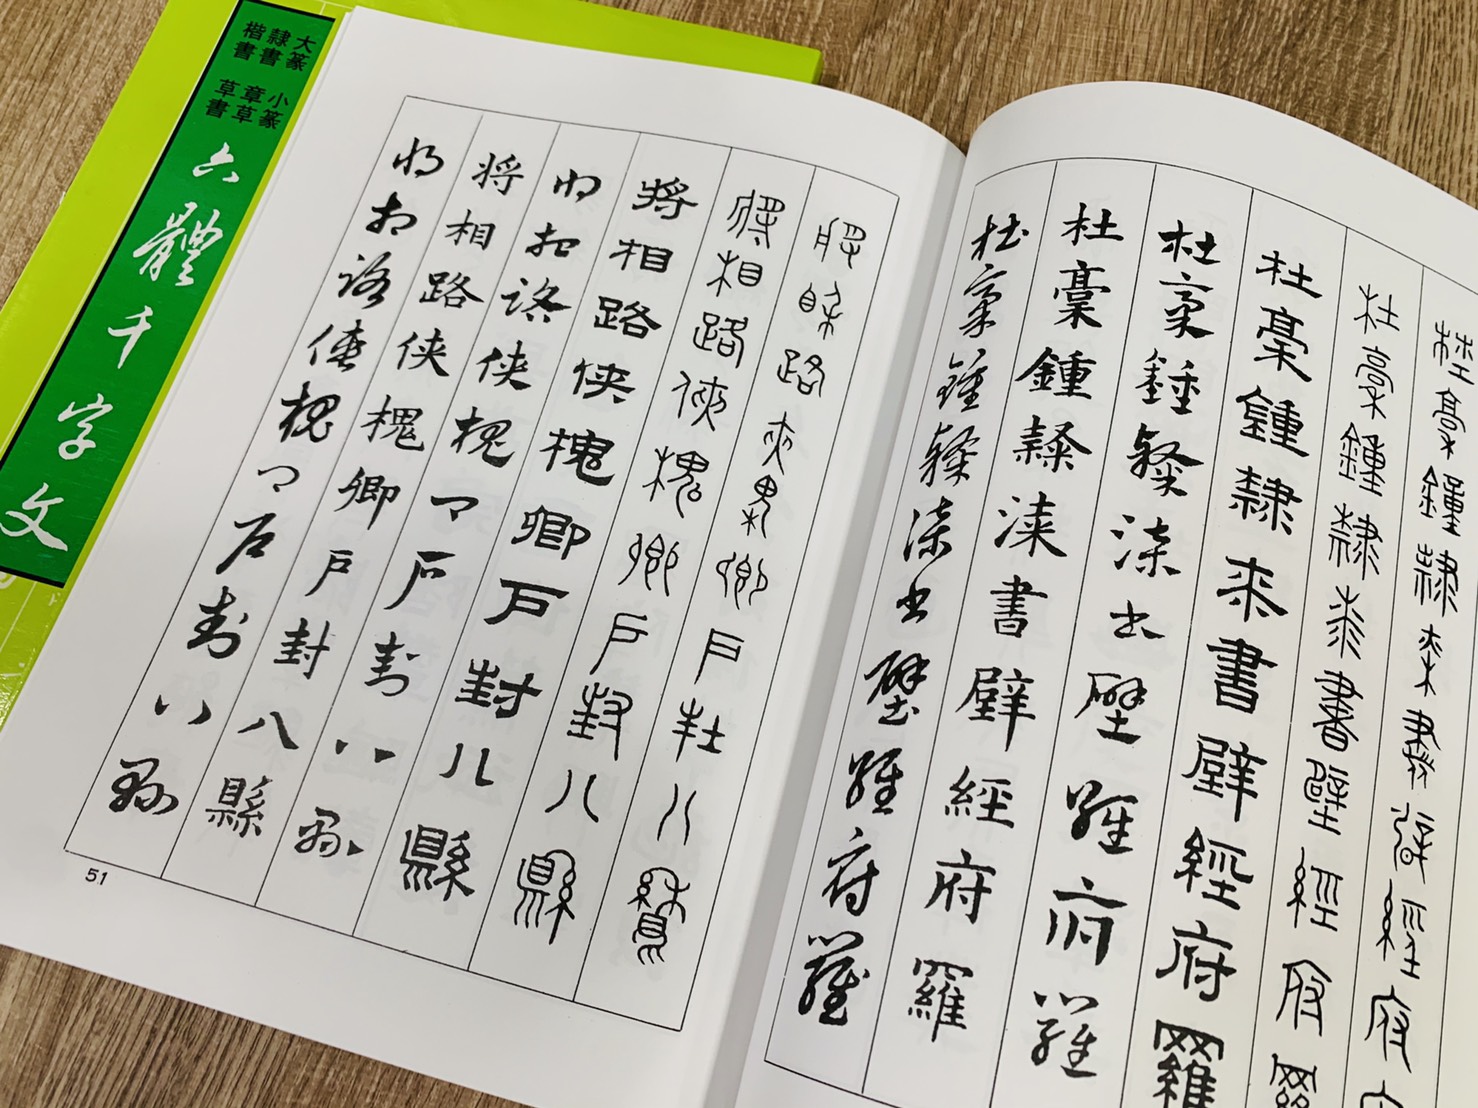 大篆 隸書 楷書
小篆 章草 草書
六體千字文
杜稾鍾隸漆書壁經府
杜稾鍾隸漆書壁經府羅
杜稾鍾隸漆書壁經府羅
杜稾鍾隸漆書壁經府羅
杜稾鍾隸漆書壁經府羅
杜稾鍾隸漆書壁經府羅
將相路俠槐卿戶封八縣
將相路俠槐卿戶封八縣
將相路俠槐卿戶封八縣
將相路俠槐卿戶封八縣
將相路俠槐卿戶封八縣
將相路俠槐卿戶封八縣
51